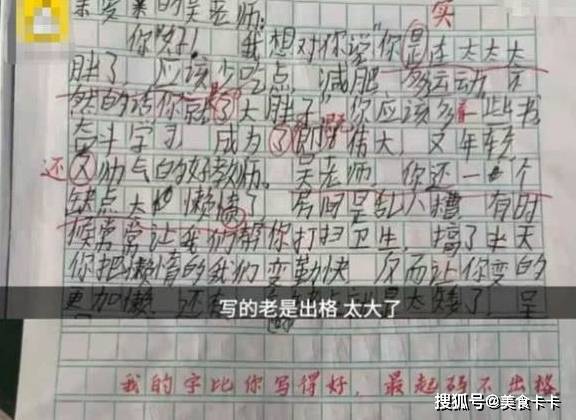 亲爱的吴老师:
实
你好!我想对你说"你是在太太太
胖了,应该少吃点,减肥,多运动,不
然的话你就太胖了"你应该多看一些书,
奋斗学习,成为了伟大,又年轻
还又幼气的好教师。吴老师,你还一个
缺点太懒惰了,房间里乱八糟,有时
候常常让我们帮你打扫卫生,搞了半天
你把懒惰的我们变勤快,反而让你变的
更加懒,还太矮了,
写的老是出格 太大了
我的字比你写得好,最起码不出格
搜狐号@美食卡卡